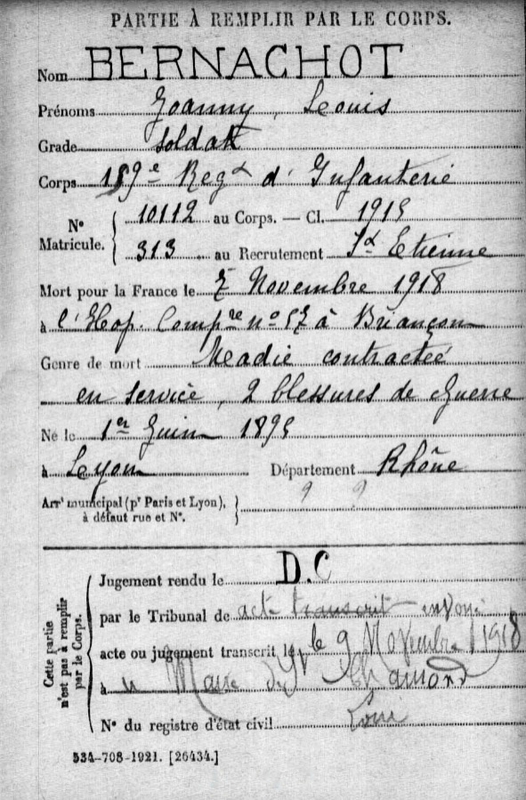 PARTIE À REMPLIR PAR LE CORPS.
Nom BERNACHOT
Prénoms Joanny, Louis
Grade soldat
Corps 159e Regt d'Infanterie
N° Matricule. { 10112 au Corps. — Cl. 1915
313 au Recrutement St Etienne
Mort pour la France le 7 Novembre 1918
à l'Hop. Compre n° 57 à Briançon
Genre de mort Maladie contractée
en service, 2 blessures de Guerre
Né le 1er Juin 1895
à Lyon Département Rhône
Arrt municipal (pr Paris et Lyon), à défaut rue et N°. } ? ?
Cette partie n'est pas à remplir par le Corps.
Jugement rendu le D.C
par le Tribunal de acte transcrit envoyé
acte ou jugement transcrit le le 9 Novembre 1918
à Maire de St Chamond
N° du registre d'état civil Loire
534-708-1921. [26434.]